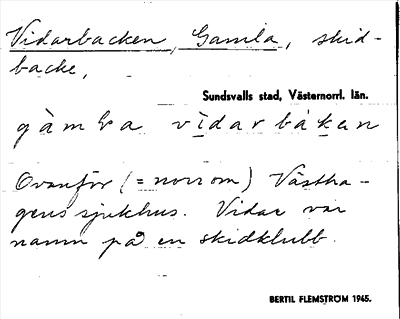 Vidarbacken, Gamla, skid-
backe,
Sundsvalls stad, Västernorrl. län.
gàmla vìdarbákan
Ovanför (= norr om) Västha-
gens sjukhus. Vidar var
namn på en skidklubb.
BERTIL FLEMSTRÖM 1965.